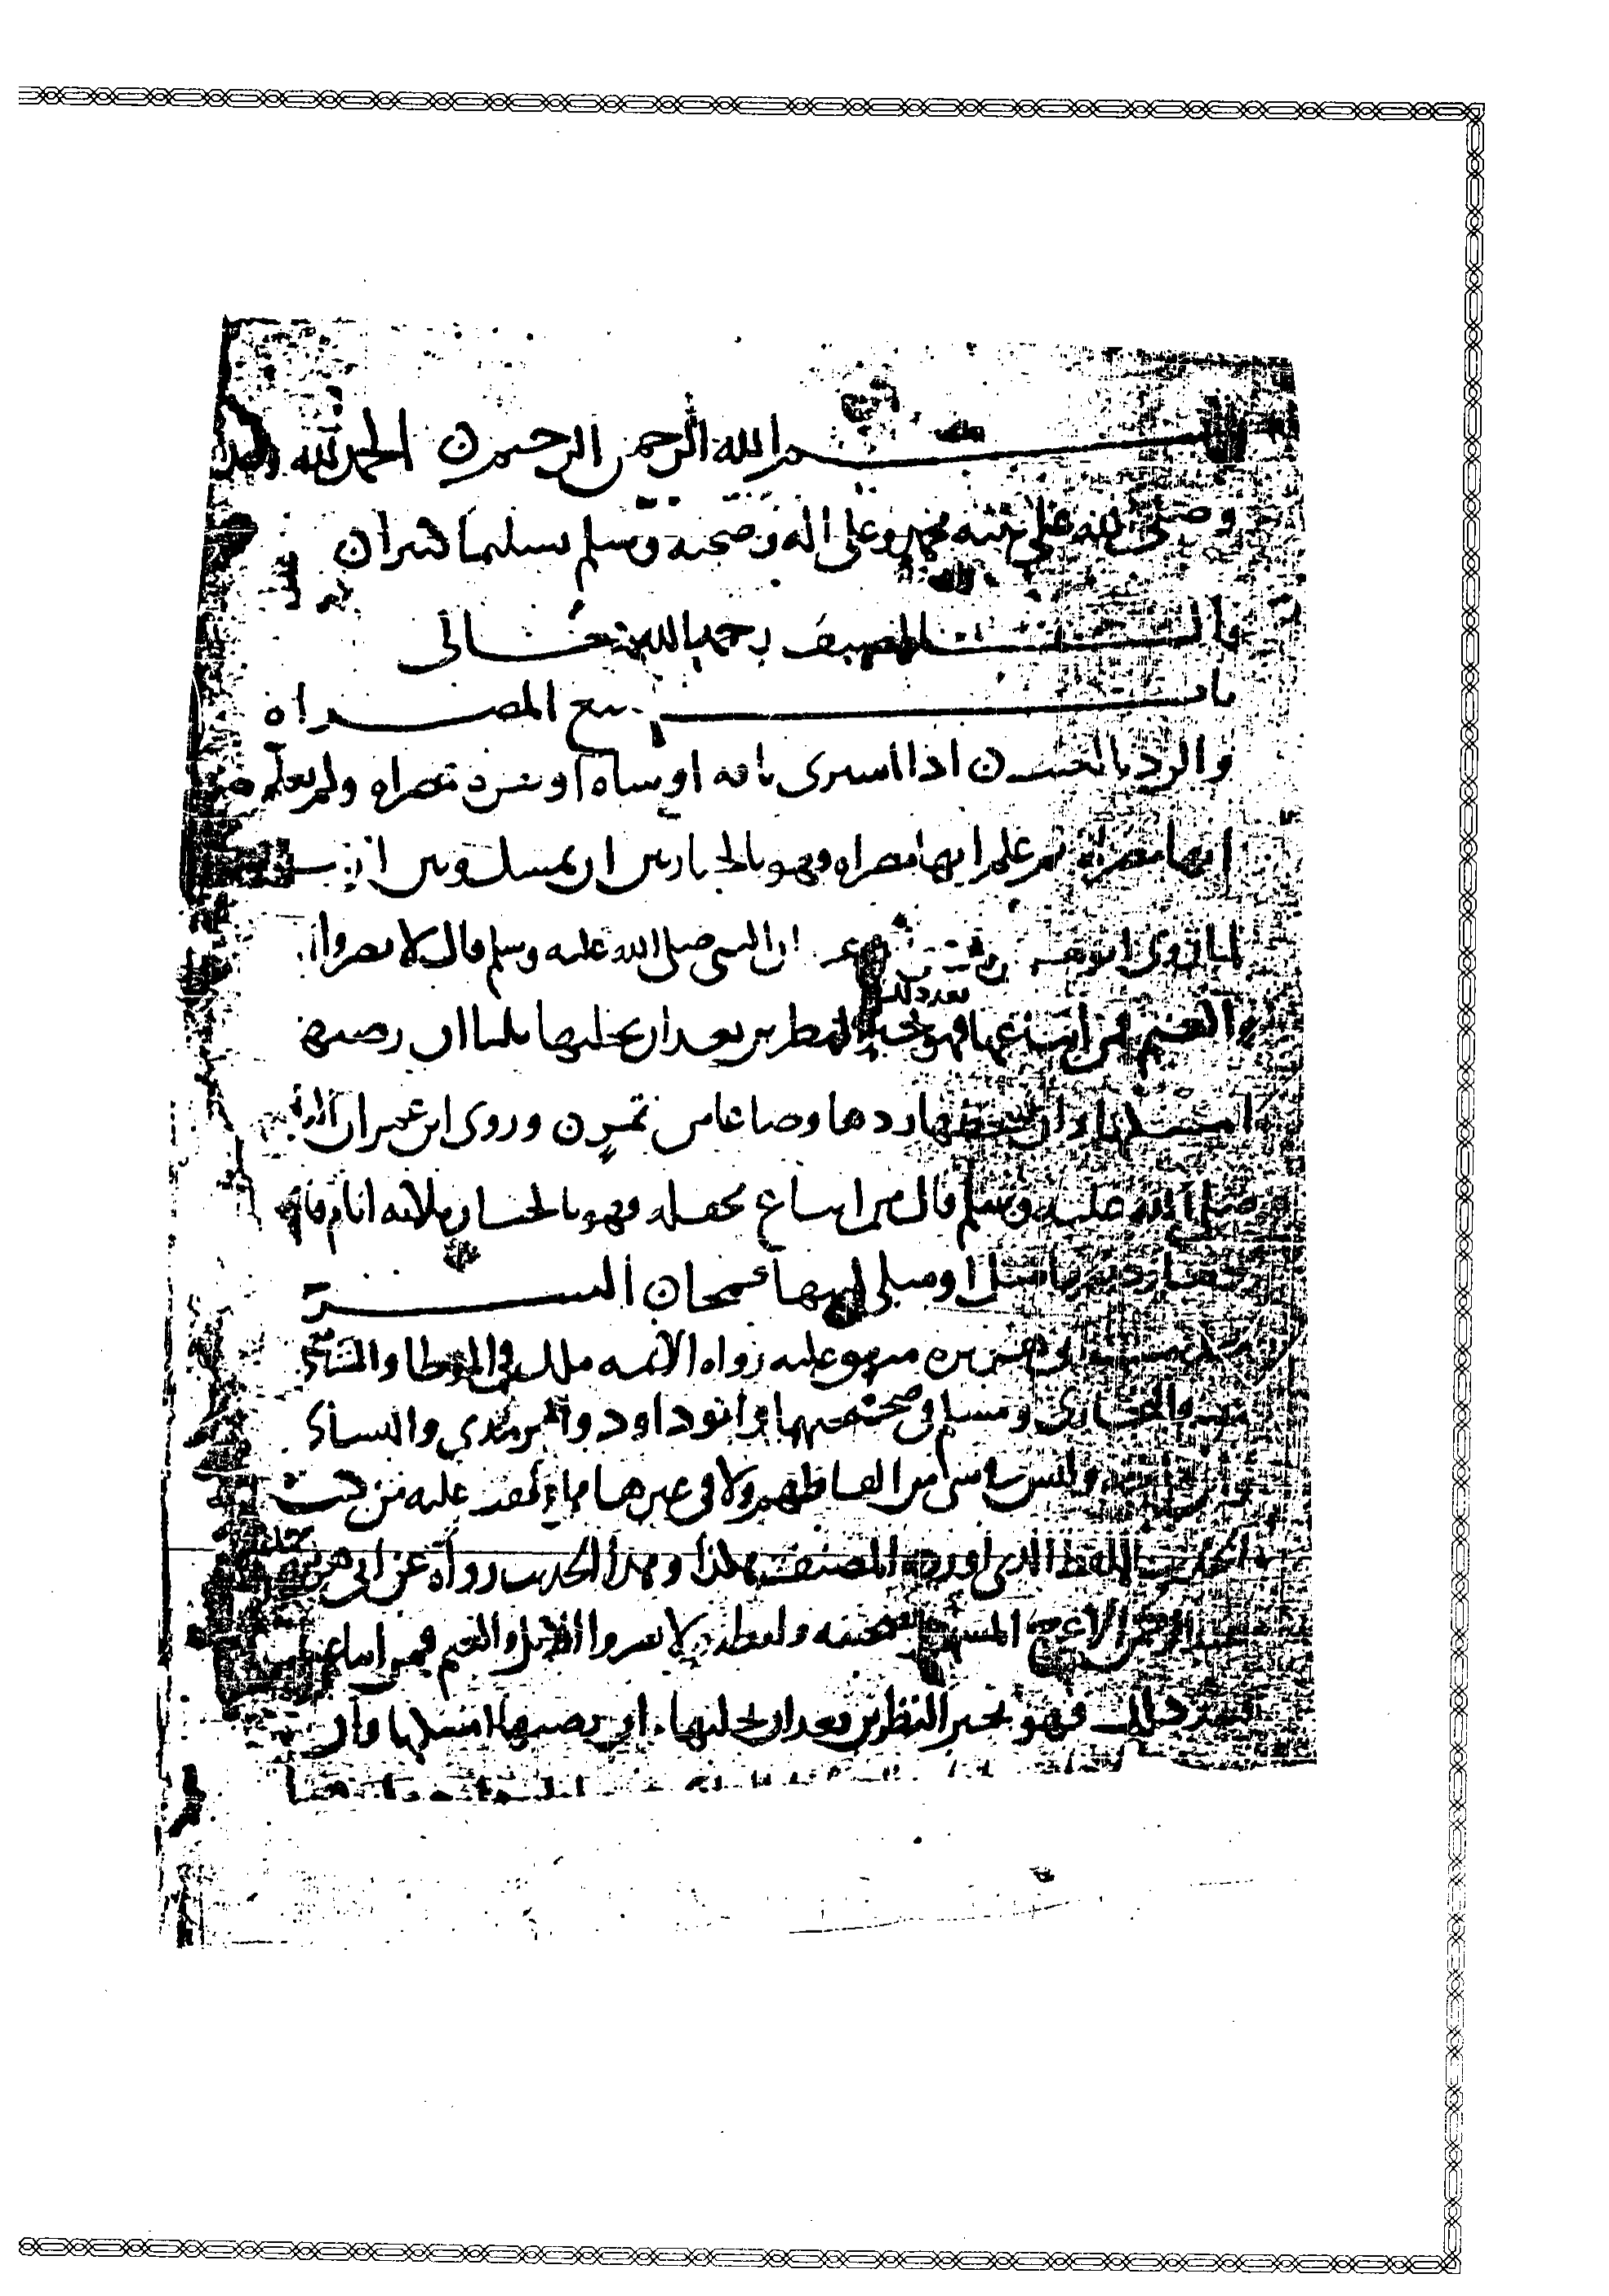 بسم الله الرحمن الرحيم الحمد لله وحده
وصلى الله على نبيه محمد وعلى اله وصحبه وسلم تسليما كثيرا
قال المصنف رحمه الله تعالى
باب بيع المصراه
والرد بالعيب اذا اشترى ناقه او شاه او بقره مصراه ولم يعلم
انها مصراه ثم علم انها مصراه فهو بالخيار بين ان يمسك وبين ان يرد
لما روى ابو هريرة ان النبي صلى الله عليه وسلم قال لا تصروا الابل
والغنم فمن ابتاعها بعد ذلك فهو بخير النظرين بعد ان يحلبها ثلثا ان رضيها
امسكها وان سخطها ردها وصاعا من تمر وروى ابن عمر ان النبي
صلى الله عليه وسلم قال من ابتاع محفله فهو بالخيار ثلاثه ايام فان
ردها رد معها مثل او مثلي لبنها قمحا الشرح
حديث ابي هريره متفق عليه رواه الايمه ملك في الموطا والشافعي
والبخاري ومسلم في صحيحيهما وابو داود والترمذي والنسائي
وليس في شي من الفاظهم ولا في غيرها مما وقفت عليه من كتب
الحديث اللفظ الذي اورده المصنف هكذا وهذا الحديث رواه عن ابي هريرة
الاعرج المتفق صحته ولفظه لا تصروا الابل والغنم فمن ابتاعها
بعد ذلك فهو بخير النظرين بعد ان يحلبها ان رضيها امسكها وان